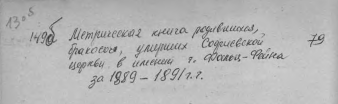 1305
149б Метрическая книга родившихся, 79
бракосоч., умерших Софиевской
церкви в имении г. Фальц-Фейна
за 1889 – 1891 г.г.